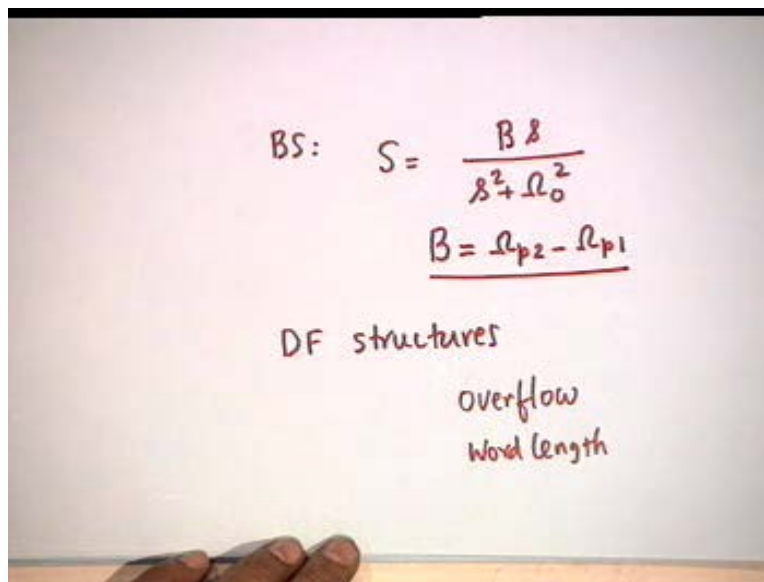 BS: S = B s / (s² + Ω₀²)
B = Ωp2 − Ωp1
DF structures
overflow
Word length